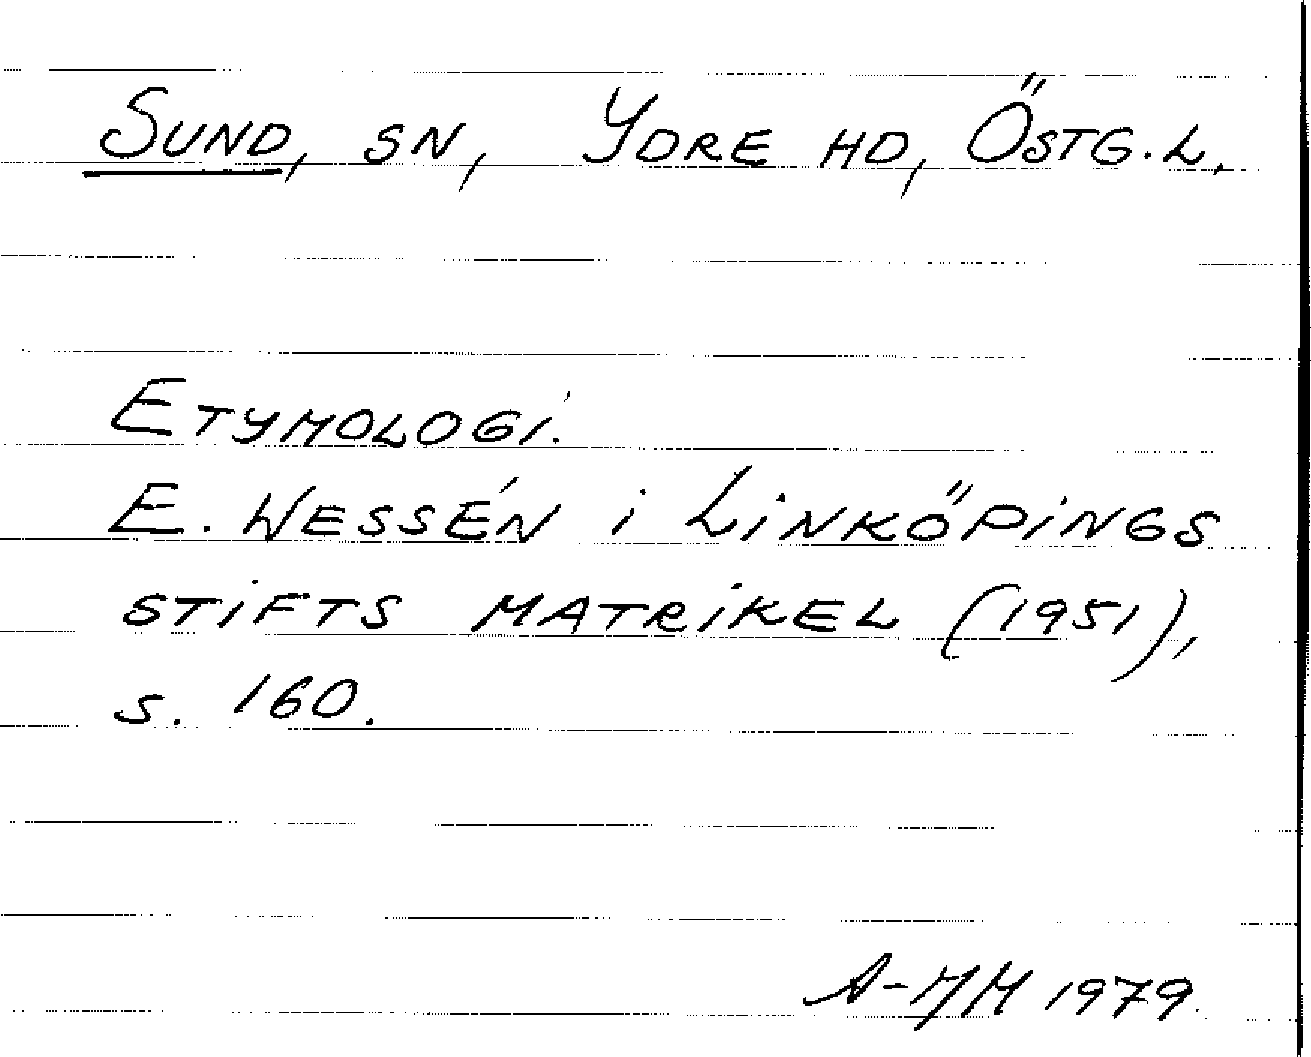 Sund, sn, Ydre hd, Östg.l.
Etymologi.
E. Wessén i Linköpings
stifts matrikel (1951),
s. 160.
A-MM 1979.